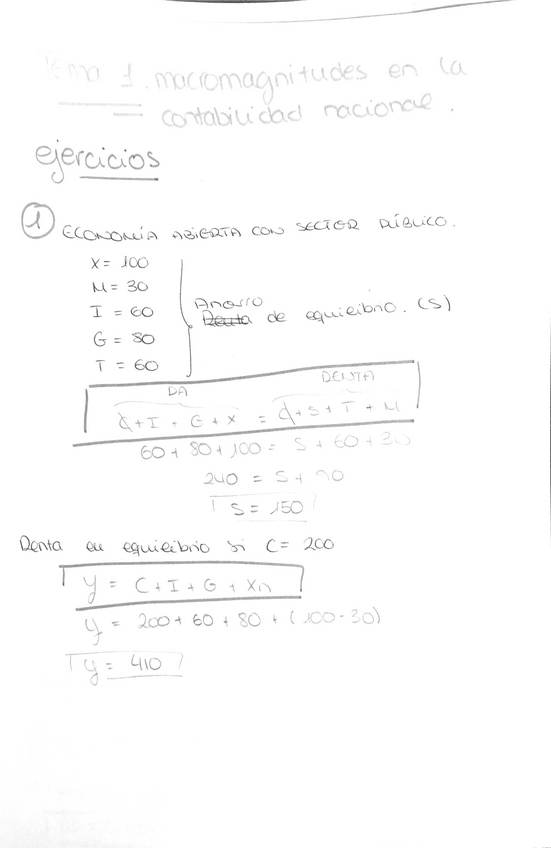 Tema 1. macromagnitudes en la
contabilidad nacional.
ejercicios
1 ECONOMÍA ABIERTA CON SECTOR PÚBLICO.
X = 100
M = 30
I = 60
G = 80
T = 60
Ahorro
Renta de equilibrio. (S)
DA RENTA
C + I + G + X = C + S + T + M
60 + 80 + 100 = S + 60 + 30
240 = S + 90
S = 150
Renta en equilibrio si C = 200
y = C + I + G + Xn
y = 200 + 60 + 80 + (100 - 30)
y = 410